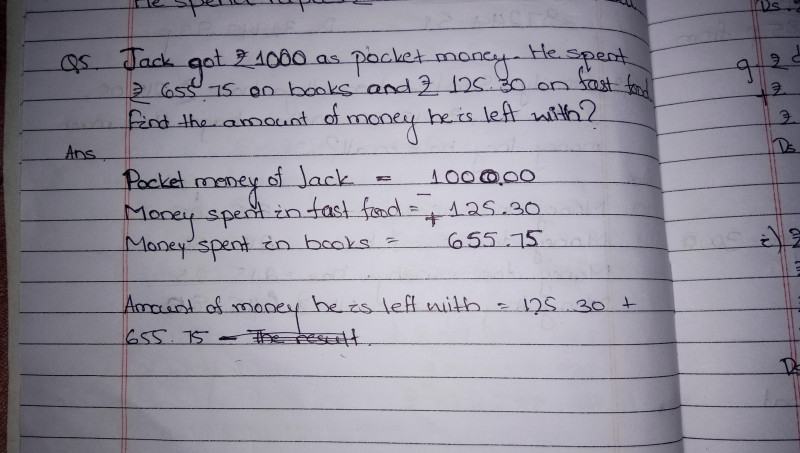 He spent
Q5. Jack got ₹1000 as pocket money. He spent
₹ 655.75 on books and ₹ 125.30 on fast food
Find the amount of money he is left with?
Ans.
Pocket money of Jack = 1000.00
Money spent in fast food = + 125.30
Money spent in books = 655.75
Amount of money he is left with = 125.30 +
655.75 -